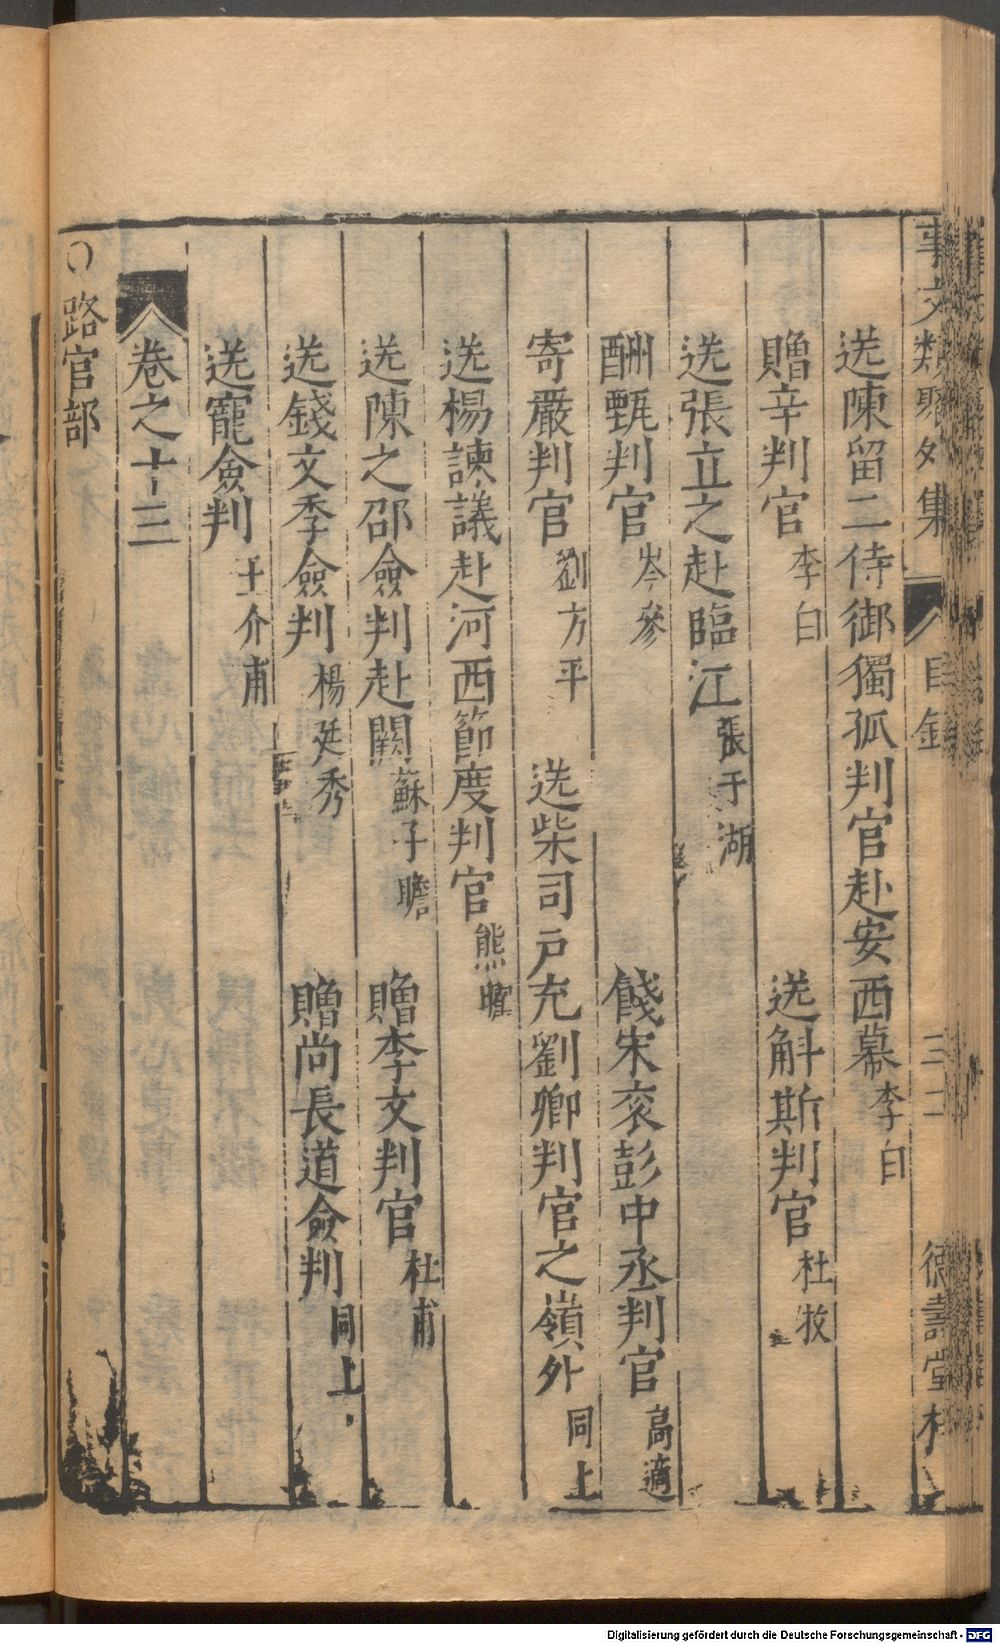 事文類聚外集 目錄 三二 德壽堂梓
送陳留二侍御獨孤判官赴安西幕 李白
贈辛判官 李白 送斛斯判官 杜牧
送張立之赴臨江 張于湖
酬甄判官 岑參 餞宋衮彭中丞判官 高適
寄嚴判官 劉方平 送柴司戸充劉卿判官之嶺外 同上
送楊諫議赴河西節度判官 熊曜
送陳之邵僉判赴闕 蘇子瞻 贈李文判官 杜甫
送錢文季僉判 楊廷秀 贈尚長道僉判 同上
送寵僉判 王介甫
卷之十三
○路官部
Digitalisierung gefördert durch die Deutsche Forschungsgemeinschaft - DFG